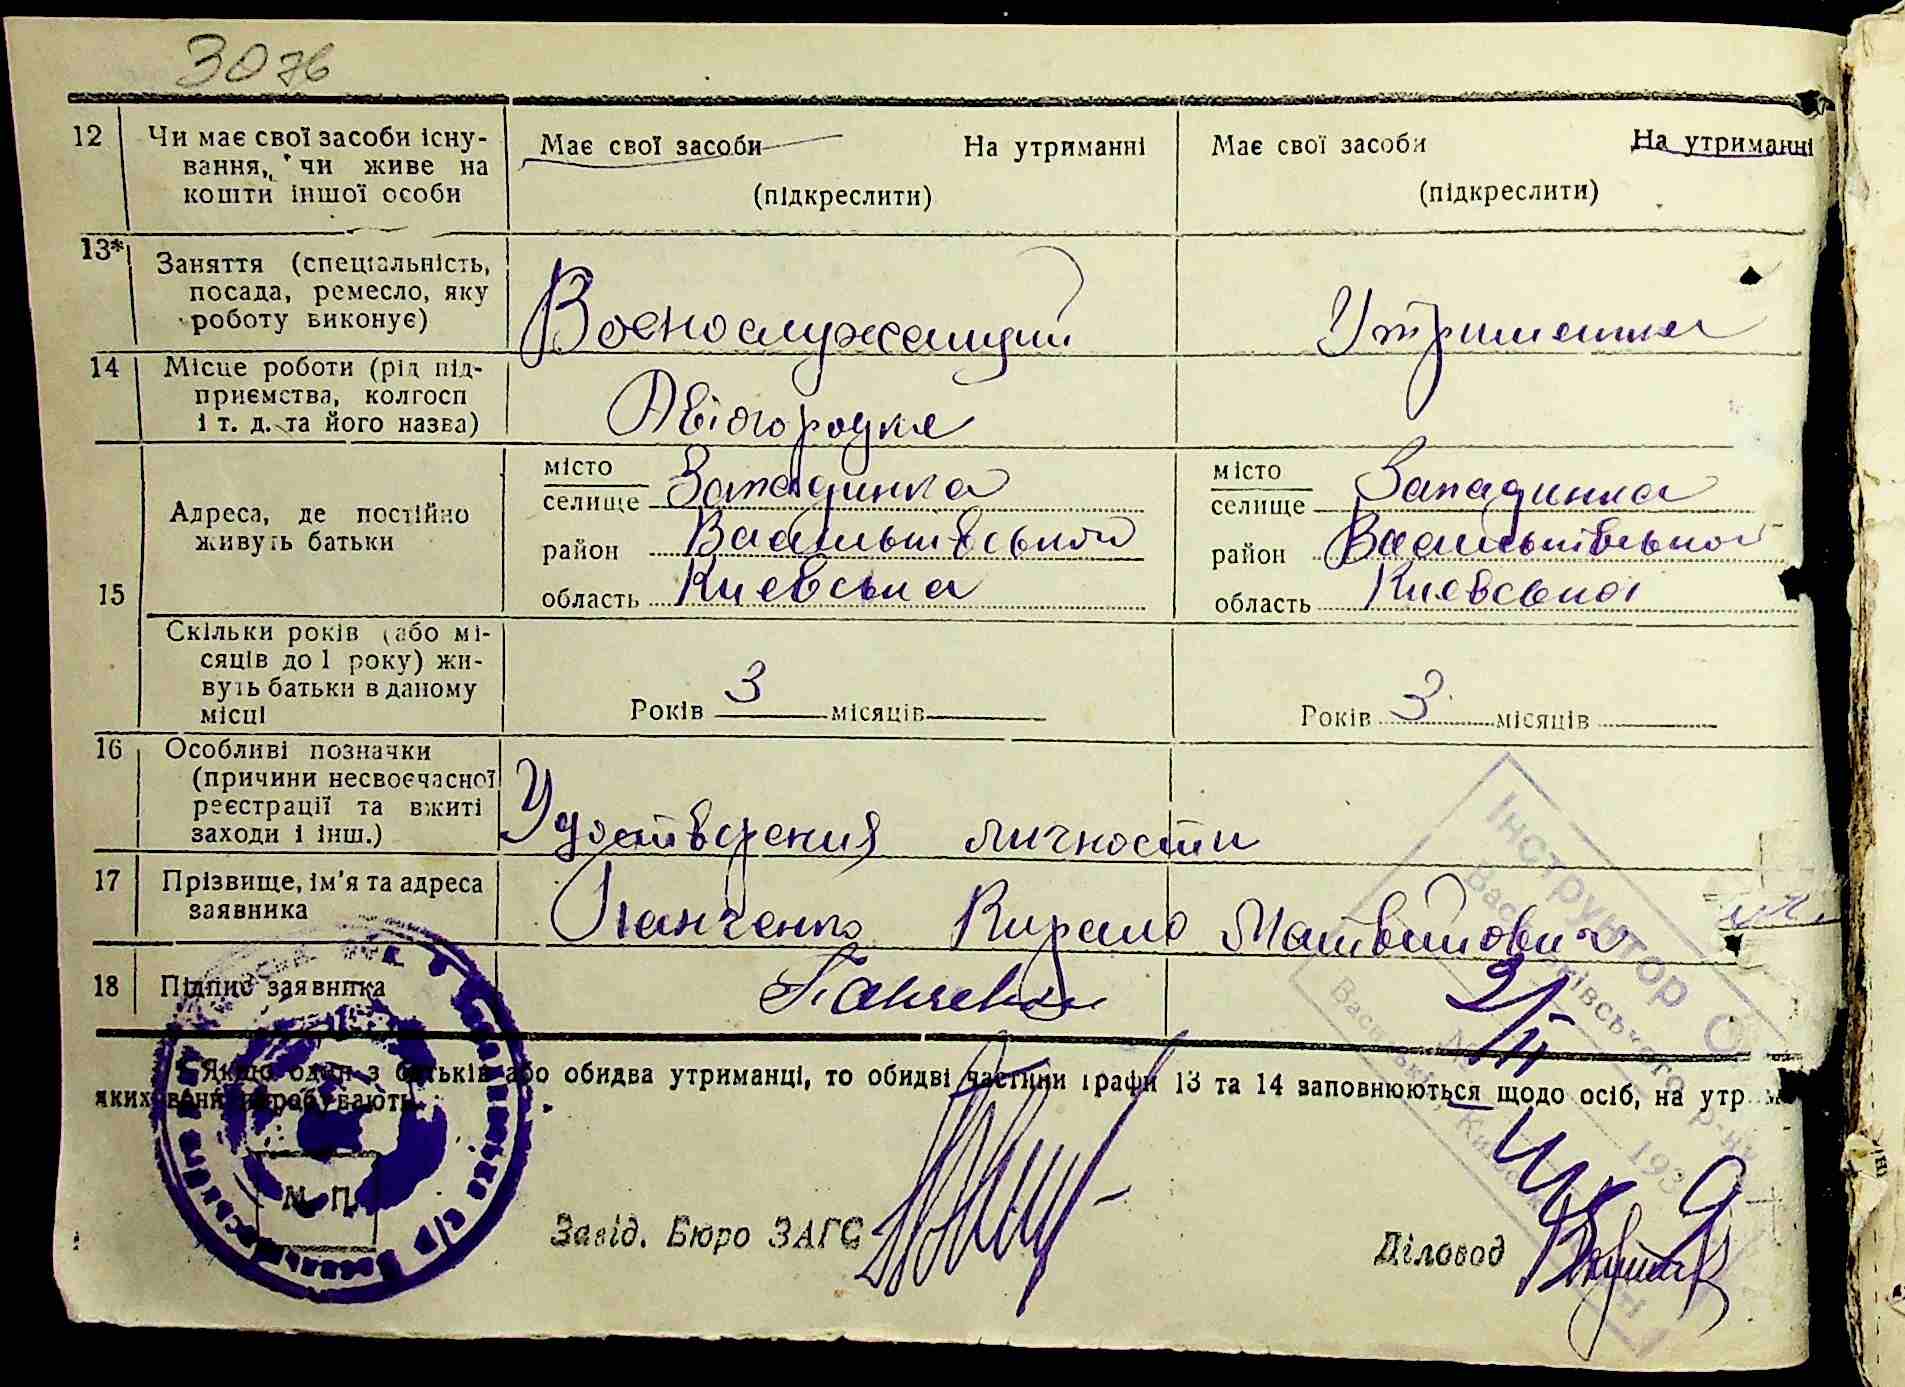 30 зв
12 Чи має свої засоби існу-
вання, чи живе на
кошти іншої особи
Має свої засоби На утриманні
(підкреслити)
Має свої засоби На утриманні
(підкреслити)
13* Заняття (спеціальність,
посада, ремесло, яку
роботу виконує)
Военослужащий
Утриманка
14 Місце роботи (рід під-
приємства, колгосп
і т. д. та його назва)
Авіогородка
15 Адреса, де постійно
живуть батьки
місто
селище Западинка
район Васильківський
область Киевська
місто
селище Западинка
район Васильківської
область Киевської
Скільки років (або мі-
сяців до 1 року) жи-
вуть батьки в даному
місці
Років 3 місяців
Років 3 місяців
16 Особливі позначки
(причини несвоєчасної
реєстрації та вжиті
заходи і інш.)
Удостверения личности
17 Прізвище, ім'я та адреса
заявника
Панченко Кирило Матвійович
18 Підпис заявника
Панченко
* Якщо один з батьків або обидва утриманці, то обидві частини графи 13 та 14 заповнюються щодо осіб, на
яких вони перебувають.
М. П.
Завід. Бюро ЗАГС
Діловод
Інструктор
Васильківського р-ну
193